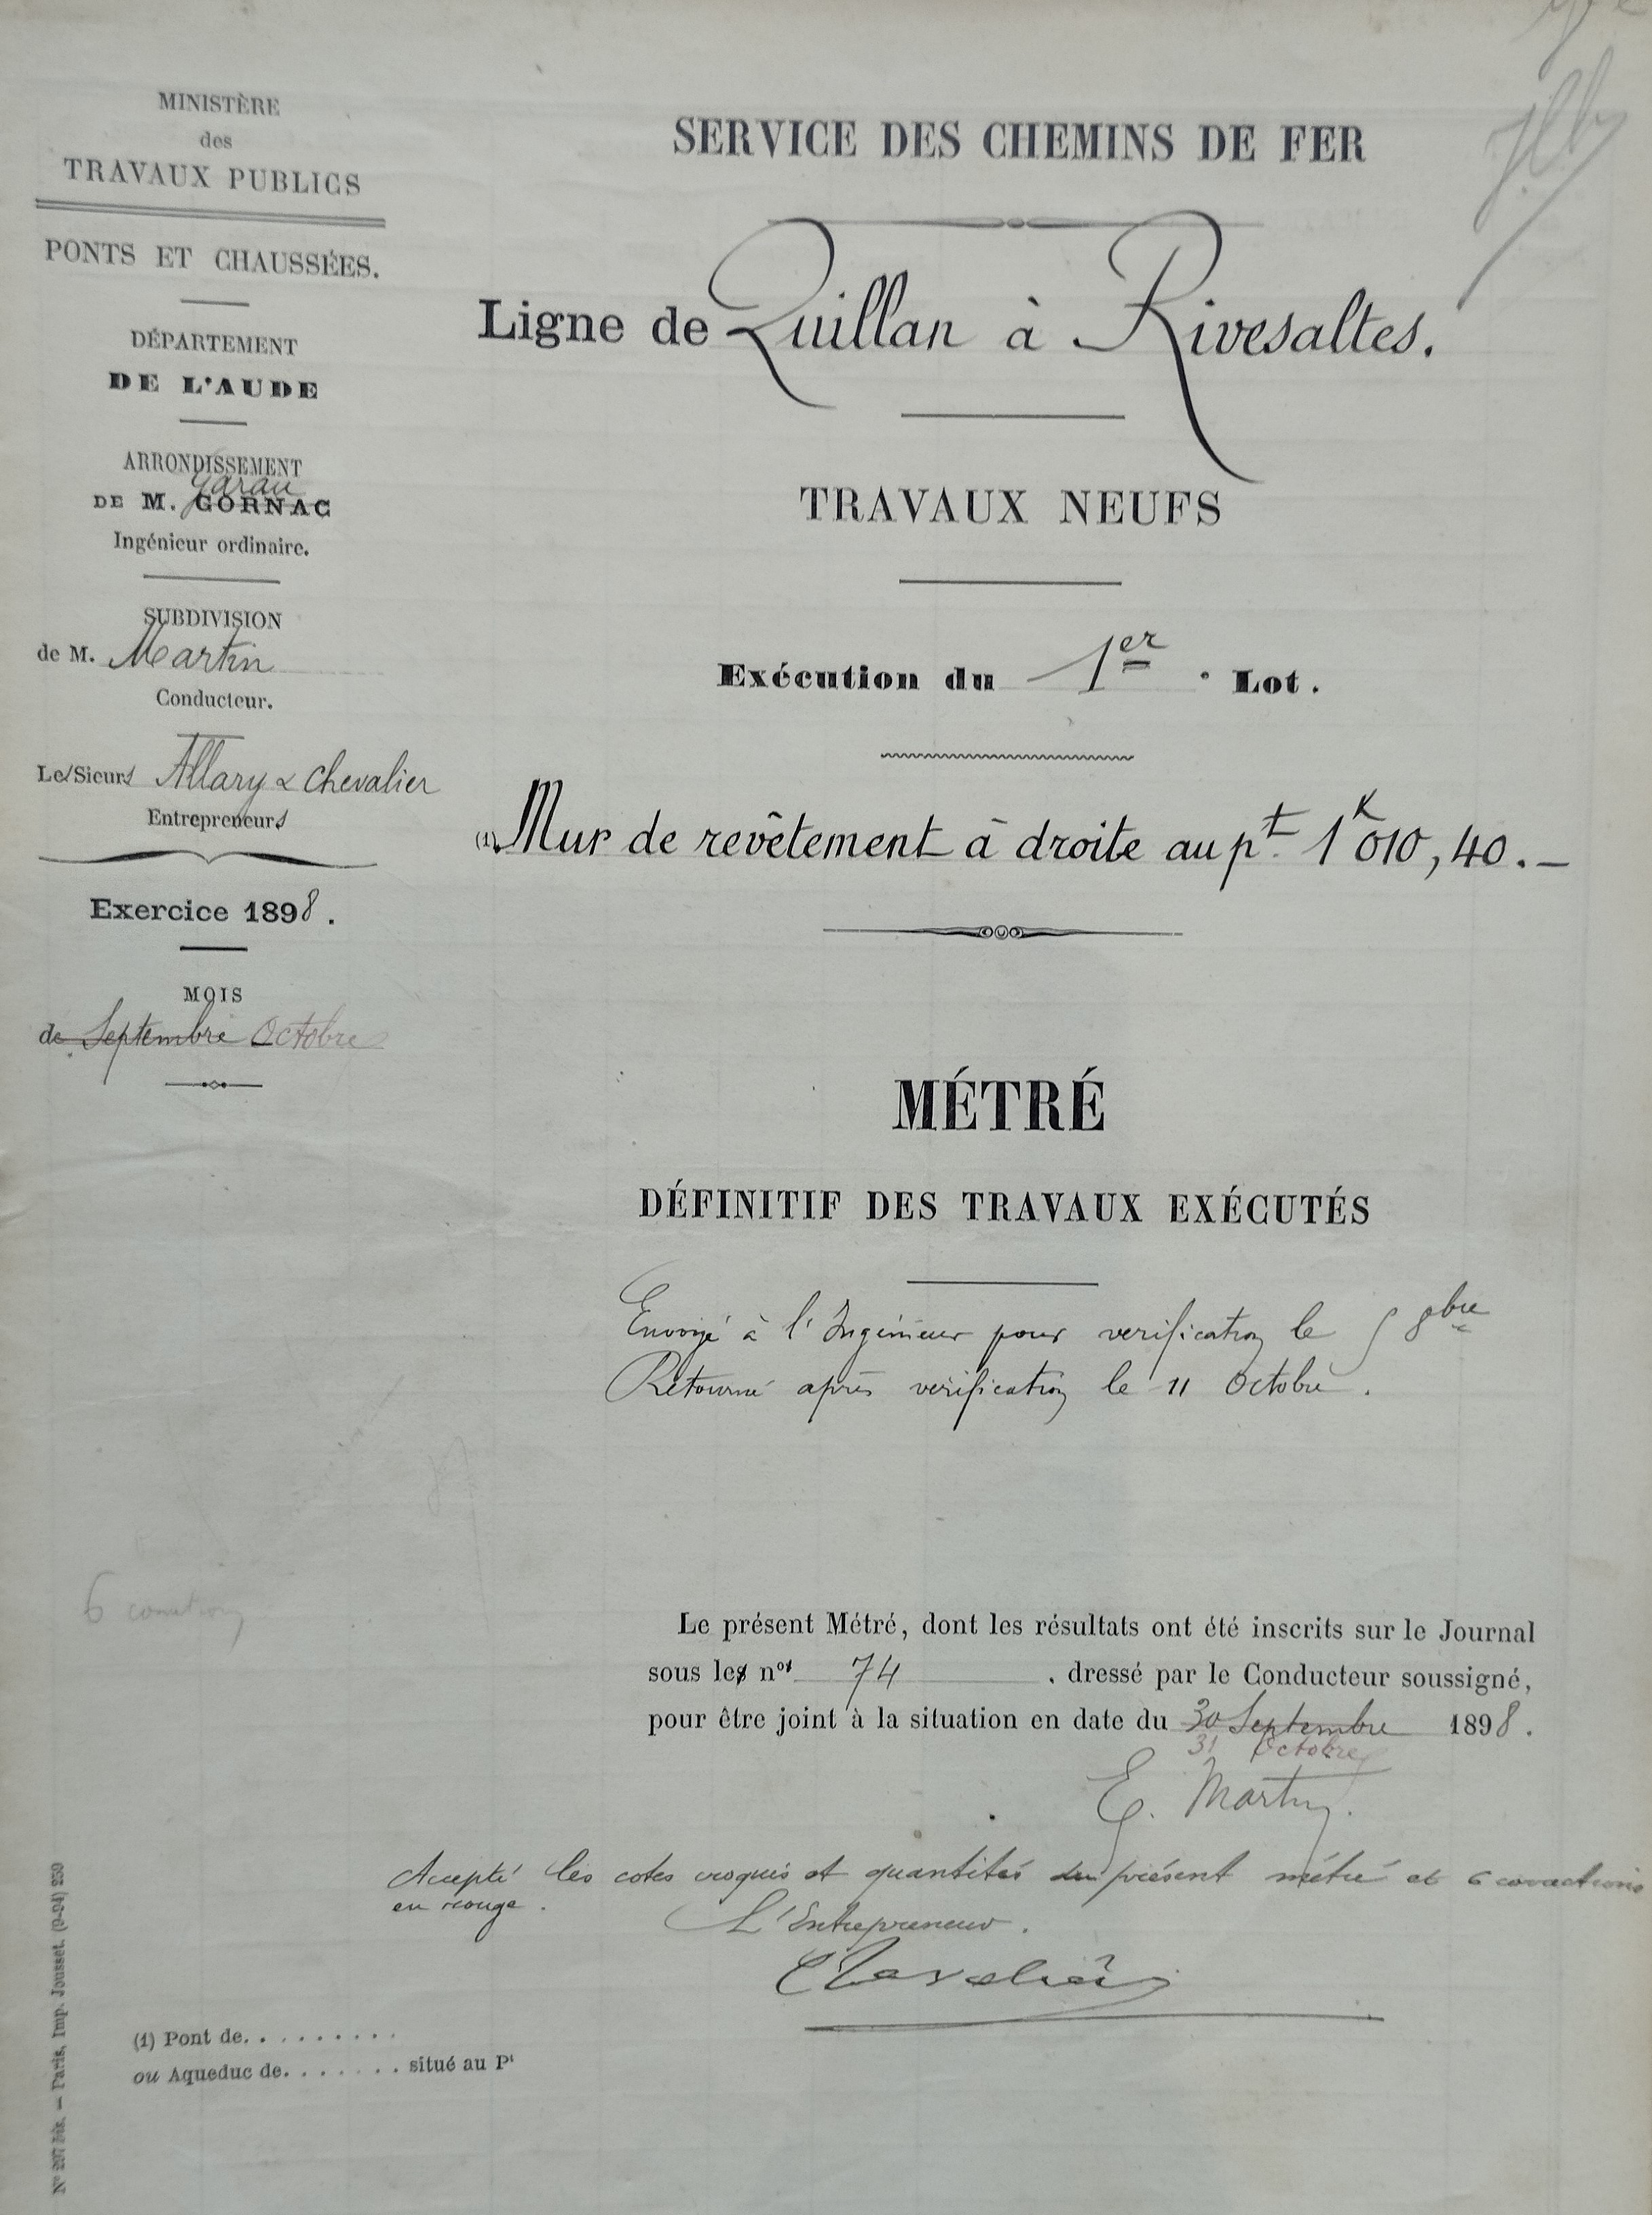 MINISTÈRE
des
TRAVAUX PUBLICS
PONTS ET CHAUSSÉES.
DÉPARTEMENT
DE L'AUDE
ARRONDISSEMENT
Garau
DE M. GORNAC
Ingénieur ordinaire.
SUBDIVISION
de M. Martin
Conducteur.
Les Sieurs Allary & Chevalier
Entrepreneurs
Exercice 1898.
MOIS
de Septembre Octobre
SERVICE DES CHEMINS DE FER
Ligne de Quillan à Rivesaltes.
TRAVAUX NEUFS
Exécution du 1er Lot.
(1) Mur de revêtement à droite au pt 1k010,40.—
MÉTRÉ
DÉFINITIF DES TRAVAUX EXÉCUTÉS
Envoyé à l'Ingénieur pour verification le 5 8bre
Retourné après verification le 11 Octobre.
6 corrections
Le présent Métré, dont les résultats ont été inscrits sur le Journal
sous les nos 74 , dressé par le Conducteur soussigné,
pour être joint à la situation en date du 30 Septembre 1898.
31 Octobre
E. Martin.
Accepté les cotes croquis et quantités du présent métré et 6 corrections
en rouge.
L'Entrepreneur.
Chevalier
(1) Pont de. . . . . . . . .
ou Aqueduc de. . . . . . . situé au Pt
N° 297 bis. — Paris, Imp. Jousset. (9-94) 250